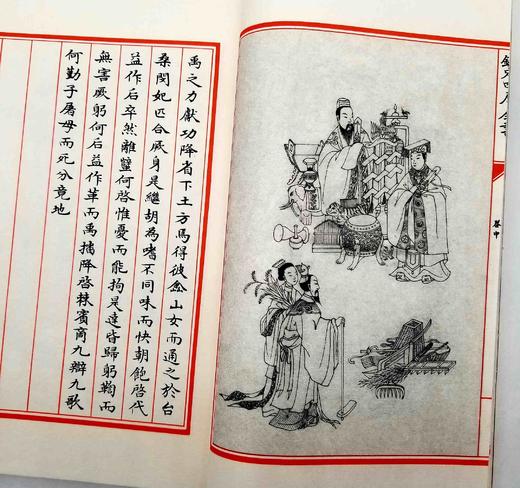 卷中
禹之力獻功降省下土方焉得彼嵞山女而通之於台
桑閔妃匹合厥身是繼胡為嗜不同味而快朝飽啓代
益作后卒然離蠥何啓惟憂而能拘是達皆歸躬鞫而
無害厥躬何后益作革而禹播降啓棘賓商九辯九歌
何勤子屠母而死分竟地